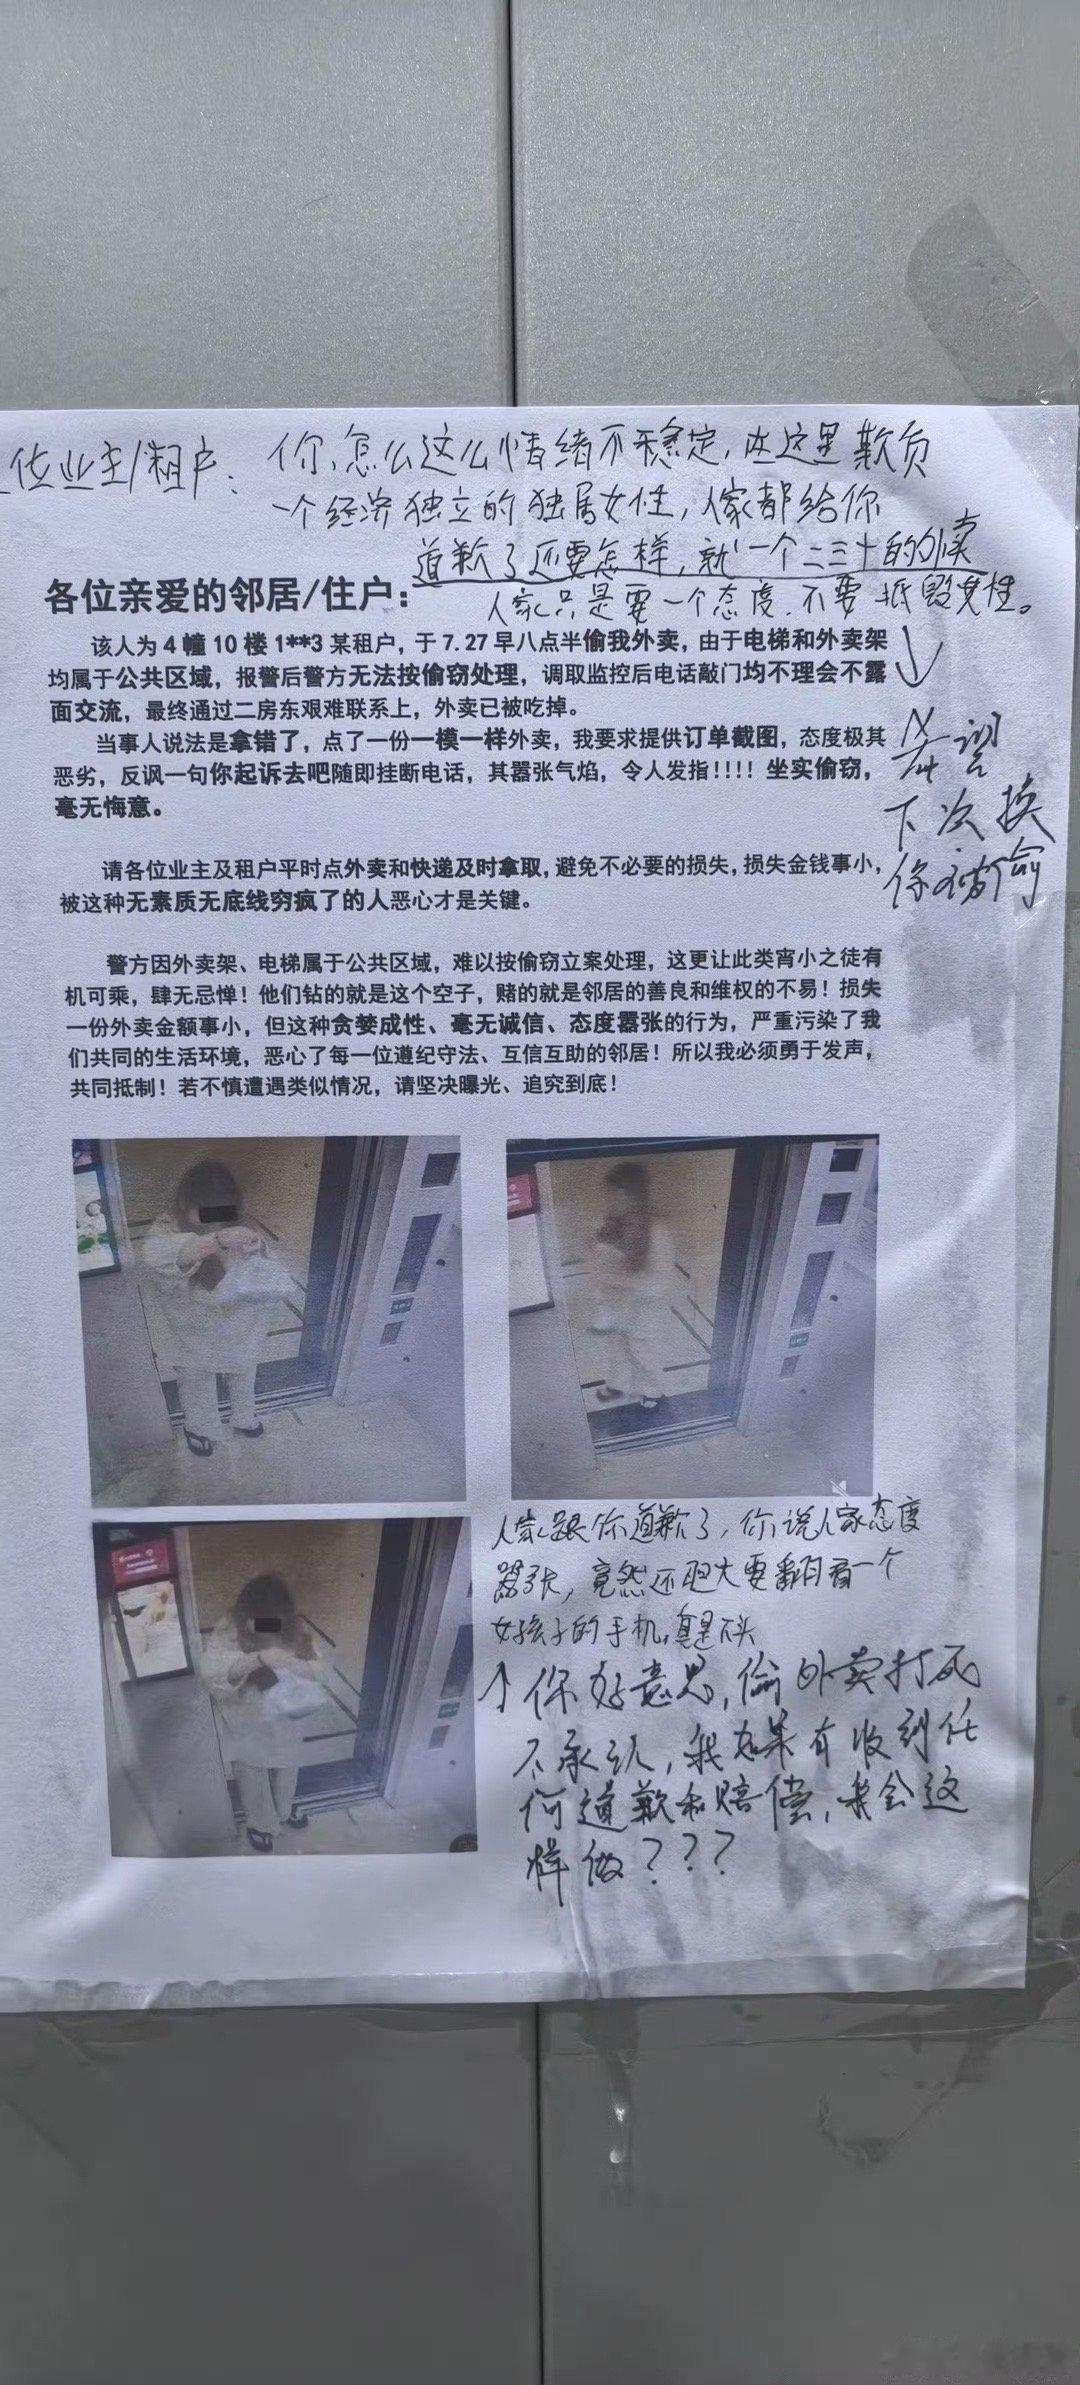 位业主/租户：
你，怎么这么情绪不稳定，在这里欺负
一个经济独立的独居女性，人家都给你
道歉了还要怎样，就一个二三十的外卖
人家只是要一个态度，不要抵毁女性。
各位亲爱的邻居/住户：
该人为4幢10楼1**3某租户，于7.27早八点半偷我外卖，由于电梯和外卖架
均属于公共区域，报警后警方无法按偷窃处理，调取监控后电话敲门均不理会不露
面交流，最终通过二房东艰难联系上，外卖已被吃掉。
当事人说法是拿错了，点了一份一模一样外卖，我要求提供订单截图，态度极其
恶劣，反讽一句你起诉去吧随即挂断电话，其嚣张气焰，令人发指!!!! 坐实偷窃，
毫无悔意。
希望
下次换
你被偷
请各位业主及租户平时点外卖和快递及时拿取，避免不必要的损失，损失金钱事小，
被这种无素质无底线穷疯了的人恶心才是关键。
警方因外卖架、电梯属于公共区域，难以按偷窃立案处理，这更让此类宵小之徒有
机可乘，肆无忌惮！他们钻的就是这个空子，赌的就是邻居的善良和维权的不易！损失
一份外卖金额事小，但这种贪婪成性、毫无诚信、态度嚣张的行为，严重污染了我
们共同的生活环境，恶心了每一位遵纪守法、互信互助的邻居！所以我必须勇于发声，
共同抵制！若不慎遭遇类似情况，请坚决曝光、追究到底！
人家跟你道歉了，你说人家态度
嚣张，竟然还胆大要翻看一个
女孩子的手机，真是
你好意思，偷外卖打死
不承认，我如果有收到任
何道歉和赔偿，我会这
样做？？？